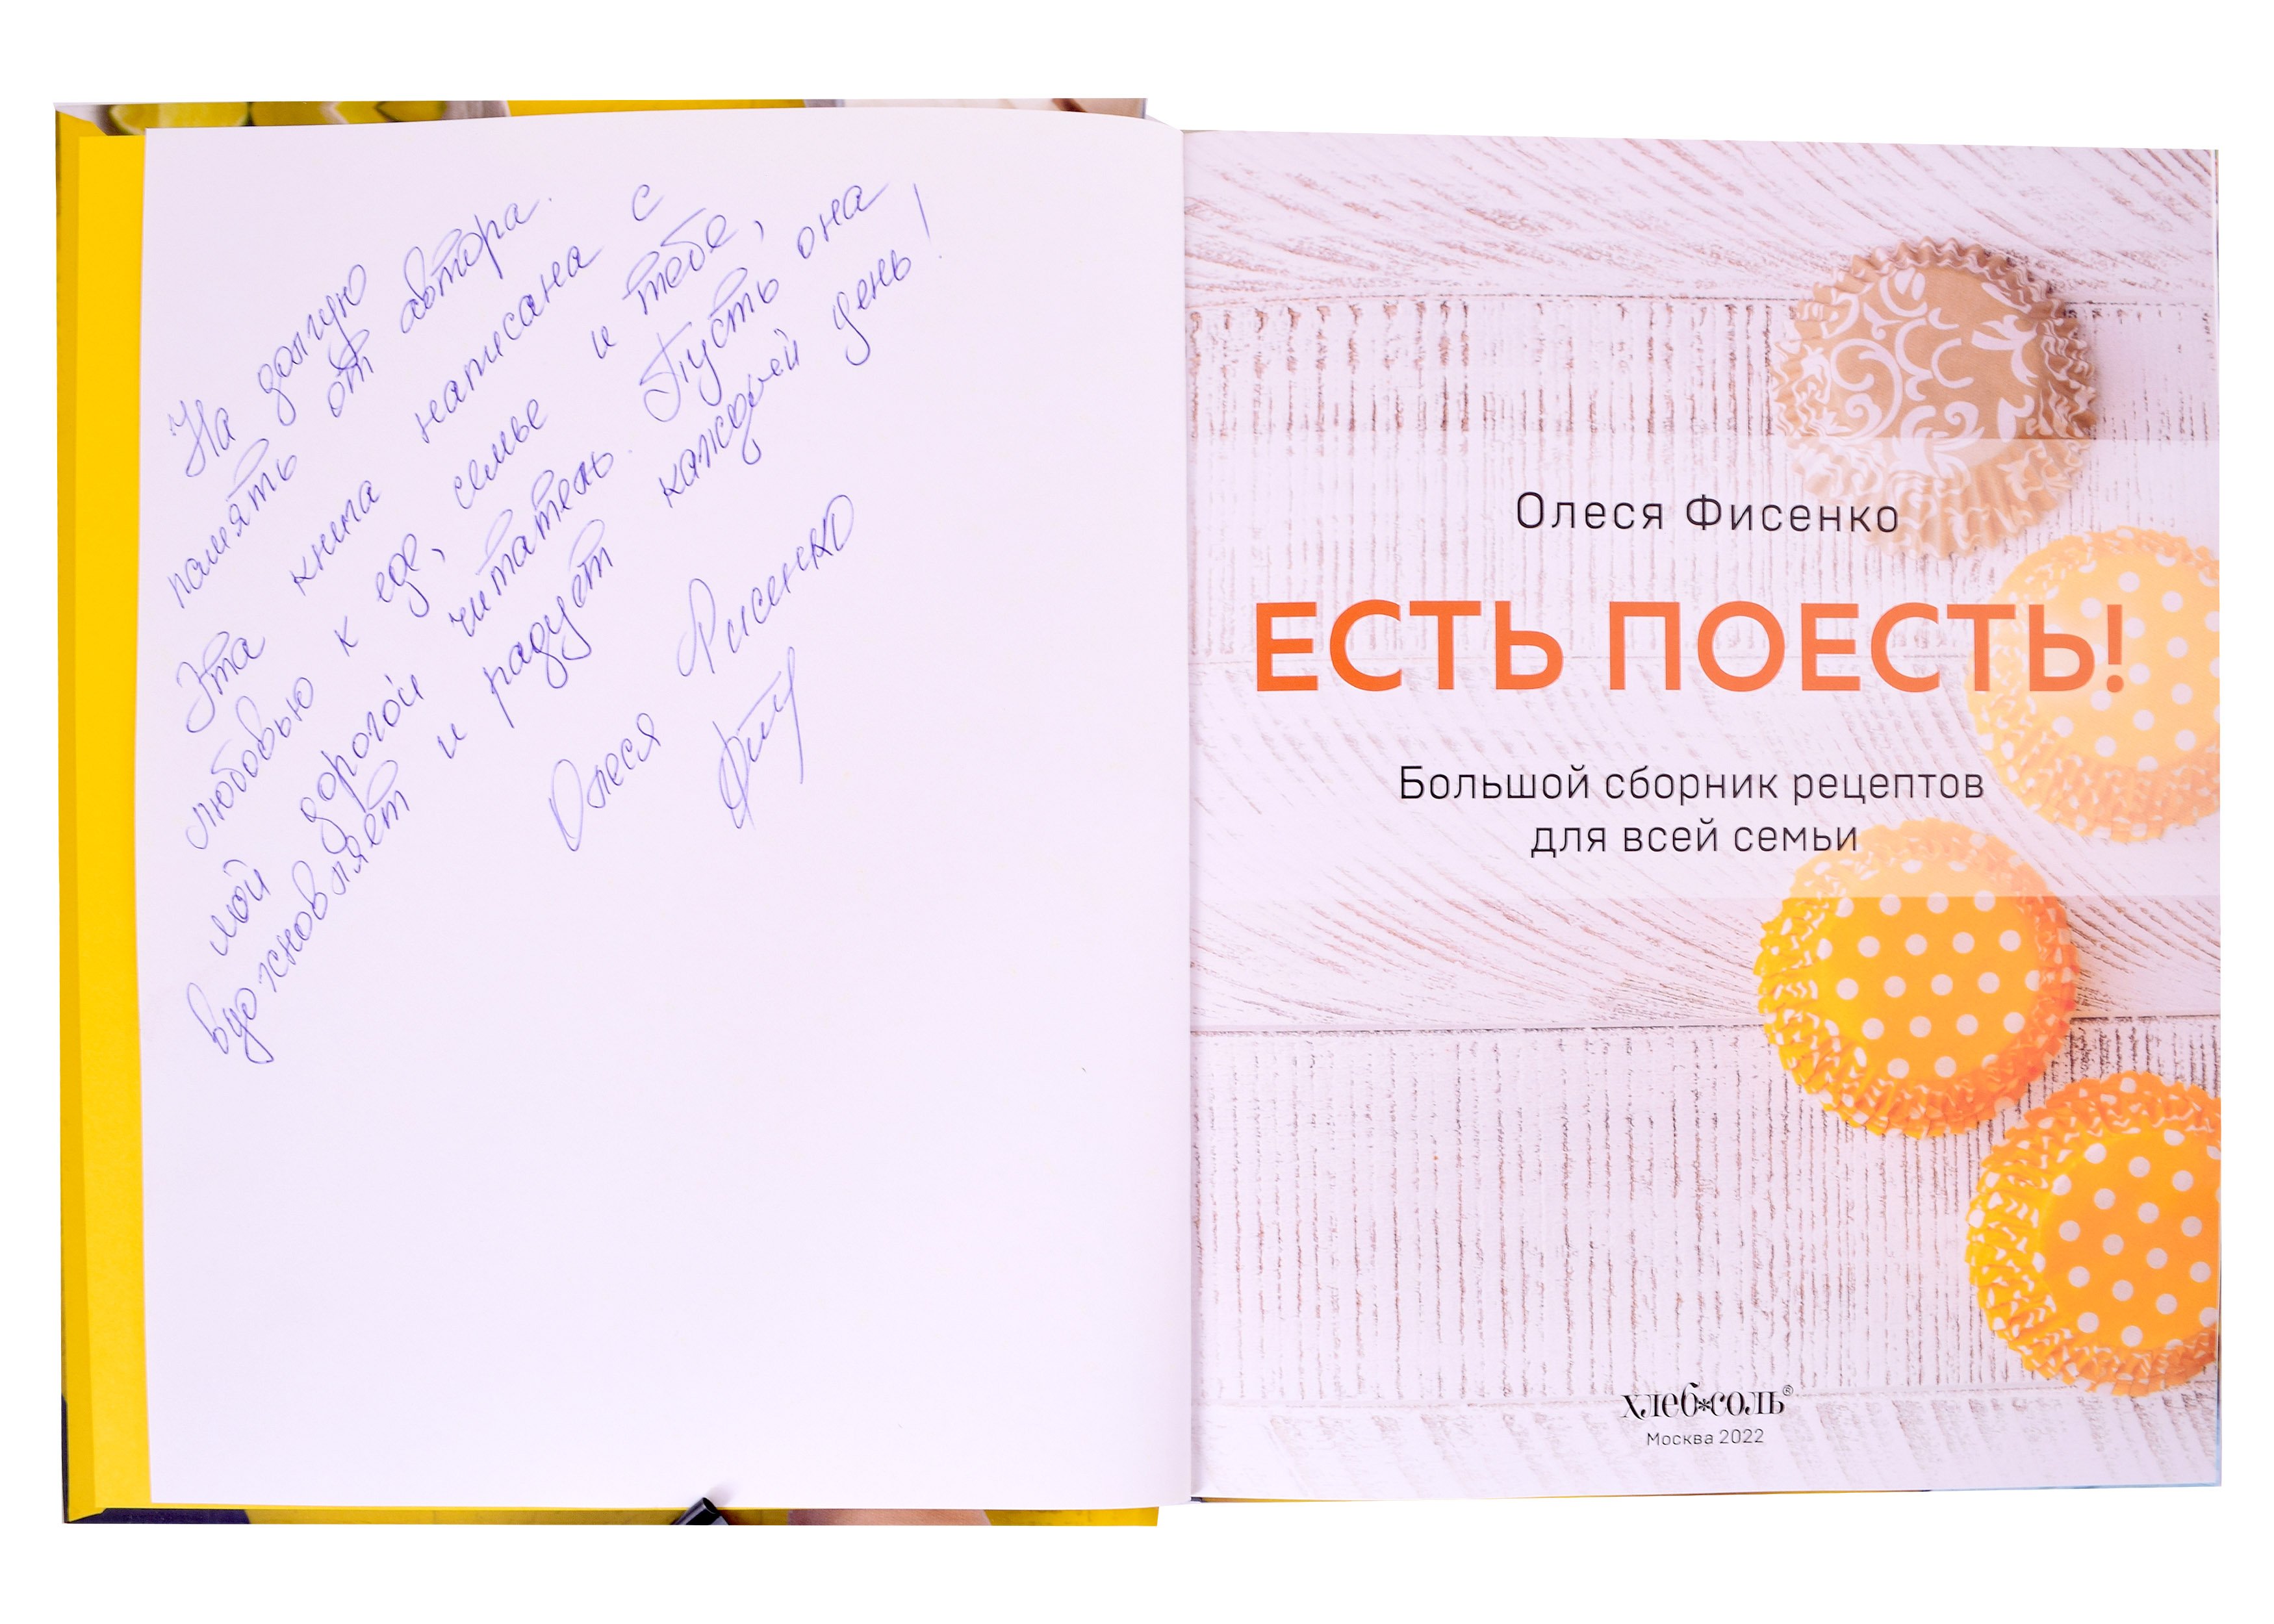 На долгую
память от автора.
Эта книга написана с
любовью к еде, семье и тебе,
мой дорогой читатель. Пусть она
вдохновляет и радует каждый день!
Олеся Фисенко
Олеся Фисенко
ЕСТЬ ПОЕСТЬ!
Большой сборник рецептов
для всей семьи
хлеб*соль®
Москва 2022